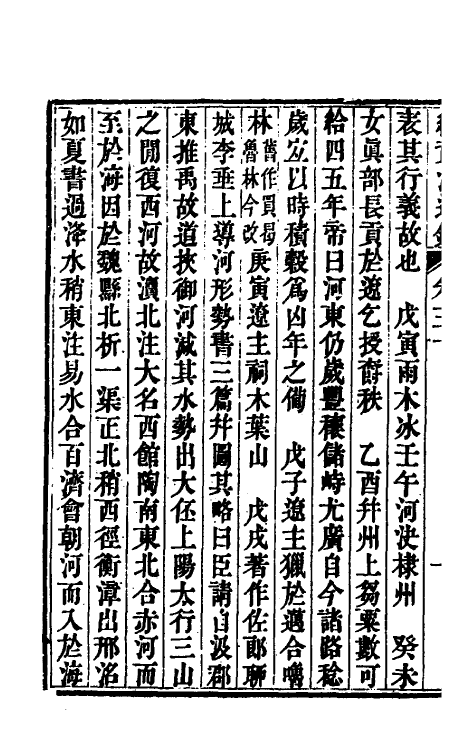 表其行義故也　戊寅雨木冰壬午河決棣州　癸未
女眞部長貢於遼乞授爵秩　乙酉幷州上芻粟數可
給四五年帝曰河東仍歲豐穰儲峙尤廣自今諸路稔
歲宜以時積穀爲凶年之備　戊子遼主獵於邁合嚕
林舊作買曷魯林今改庚寅遼主祠木葉山　戊戌著作佐郞聊
城李垂上導河形勢書三篇幷圖其略曰臣請自汲郡
東推禹故道挾御河減其水勢出大伾上陽太行三山
之閒復西河故瀆北注大名西館陶南東北合赤河而
至於海因於魏縣北析一渠正北稍西徑衡漳出邢洺
如夏書過洚水稍東注易水合百濟會朝河而入於海